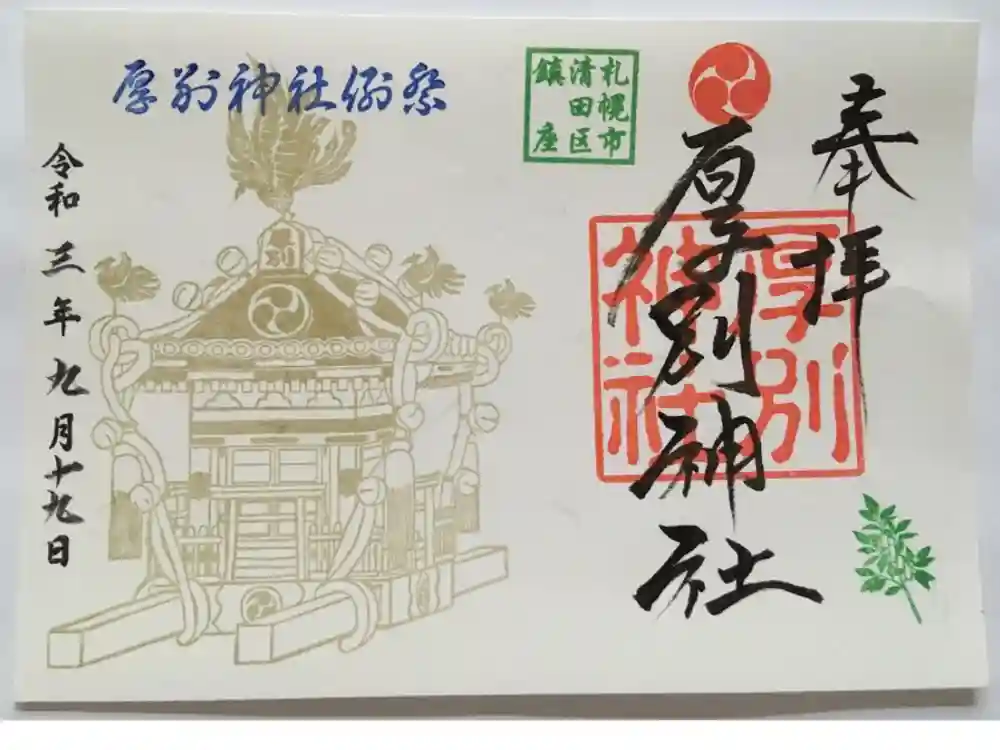 奉拝
厚別神社
厚別
神社
札幌市
清田区
鎮座
厚別神社例祭
厚別
令和三年九月十九日